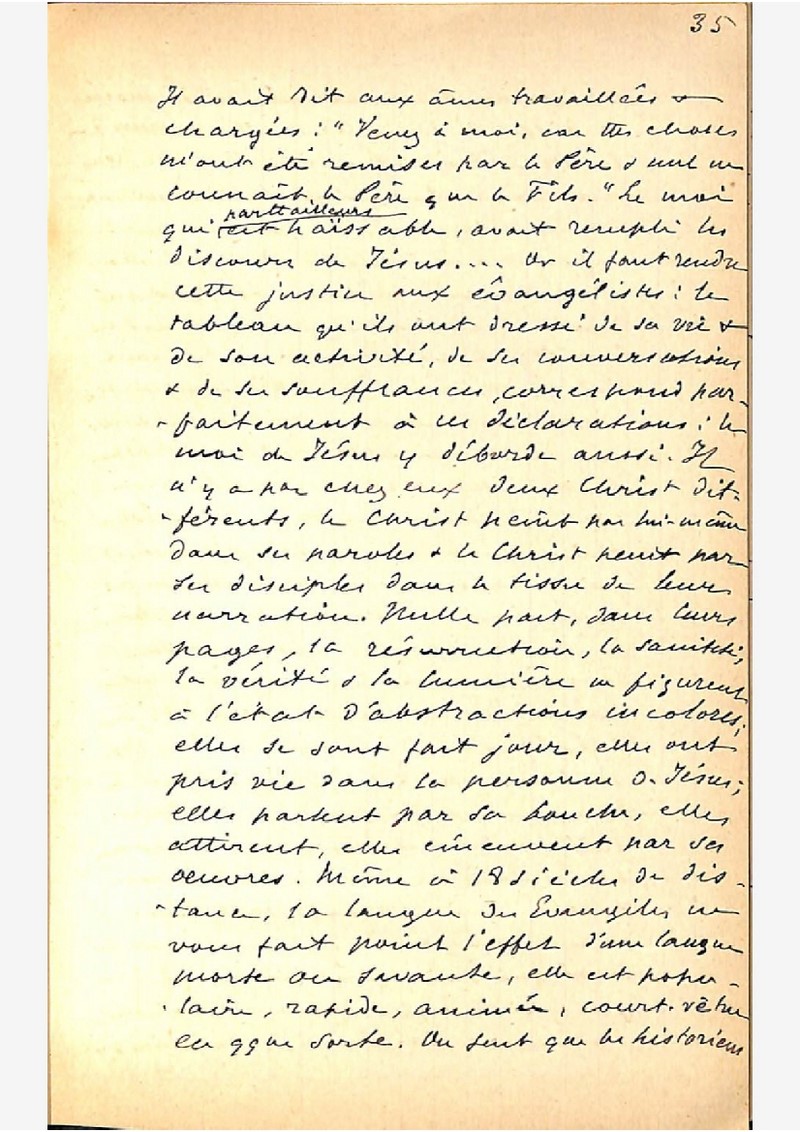 35
Il avait dit aux âmes travaillées &
chargées : "Venez à moi, car ttes choses
m'ont été remises par le Père & nul ne
connaît le Père que le Fils." Le moi
partt ailleurs
qui est haïssable, avait rempli les
discours de Jésus.... Or il faut rendre
cette justice aux évangélistes : le
tableau qu'ils ont dressé de sa vie &
de son activité, de ses conversations
& de ses souffrances, correspond par-
-faitement à ces déclarations : le
moi de Jésus y déborde aussi. Il
n'y a pas chez eux deux Christ dif-
-férents, le Christ peint par lui-même
dans ses paroles & le Christ peint par
ses disciples dans le tissu de leur
narration. Nulle part, dans leurs
pages, la résurrection, la sainteté,
la vérité & la lumière ne figurent
à l'état d'abstractions incolores;
elles se sont fait jour, elles ont
pris vie dans la personne d. Jésus;
elles parlent par sa bouche, elles
attirent, elles émeuvent par ses
oeuvres. Même à 18 siècles de dis-
-tance, la langue des Evangiles ne
vous fait point l'effet d'une langue
morte ou savante, elle est popu-
-laire, rapide, animée, court-vêtue
en qque sorte. On sent que les historiens